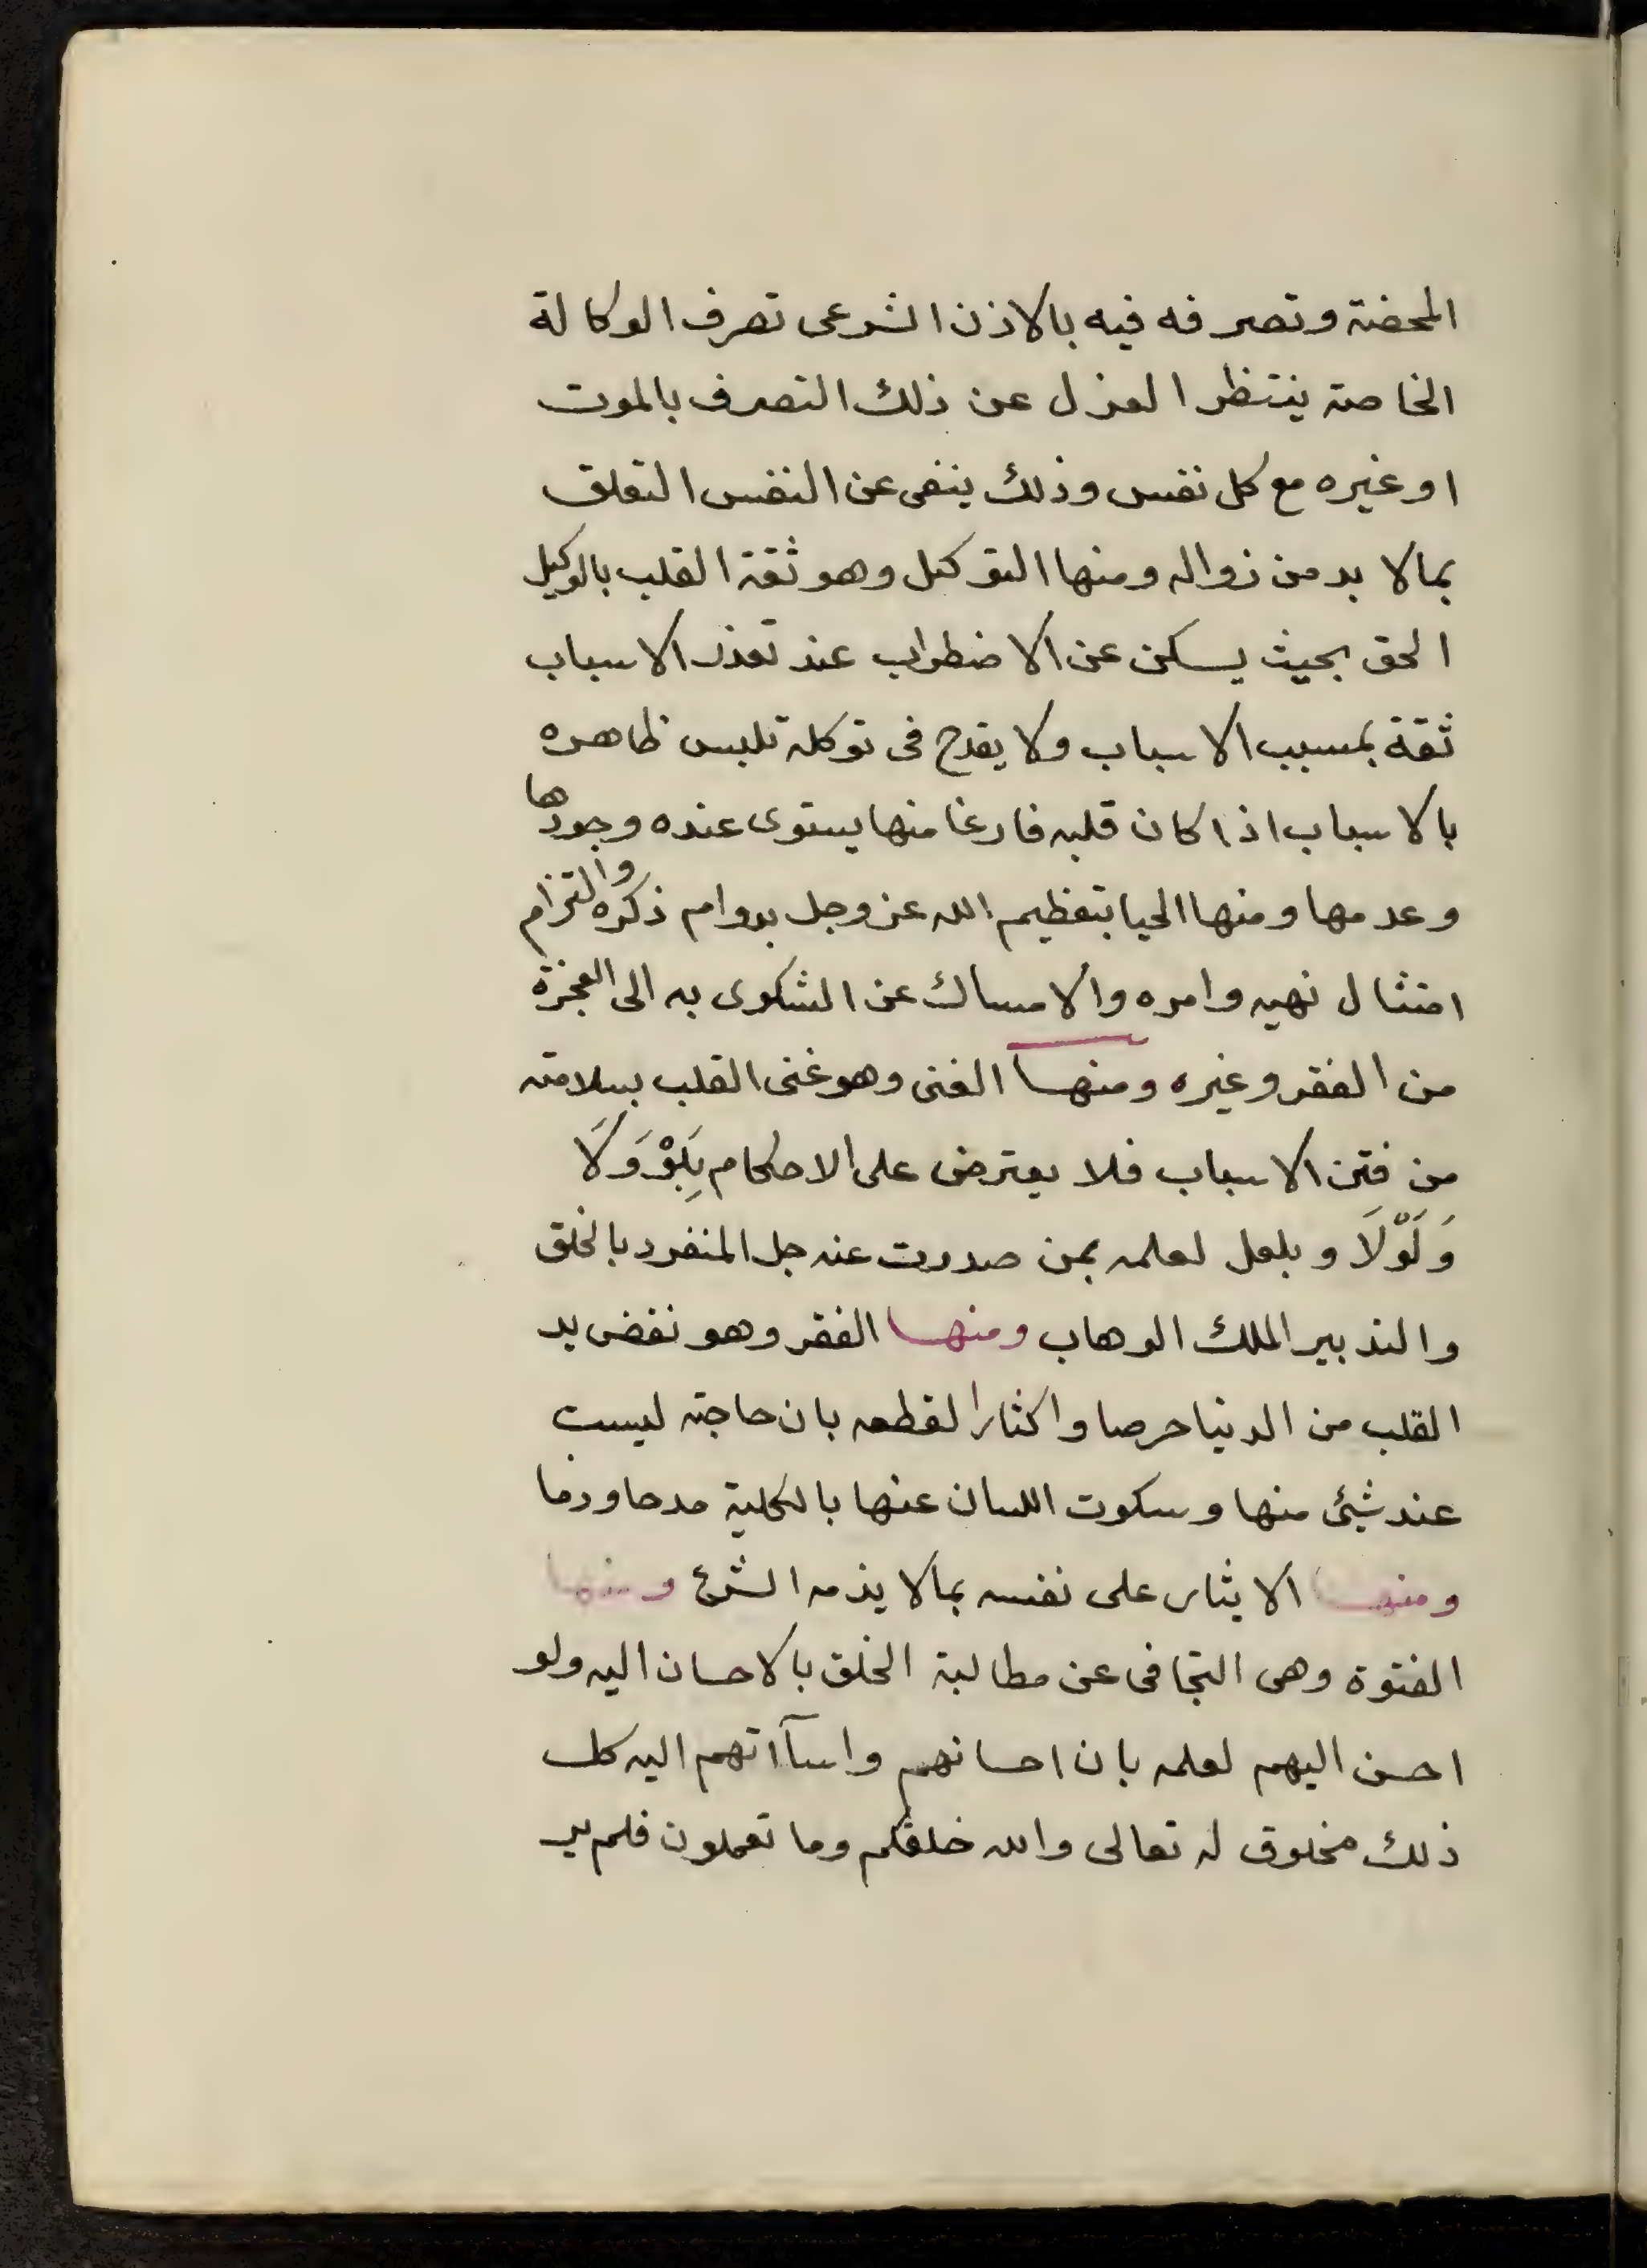 المحضة وتصرفه فيه بالاذن الشرعى تصرف الوكالة
الخاصة ينتظر العزل عن ذلك التصرف بالموت
او غيره مع كل نفس وذلك ينفى عن النفس التعلق
بمالا بد من زواله ومنها التوكل وهو ثقة القلب بالوكيل
الحق بحيث يسكن عن الاضطراب عند تعذر الاسباب
ثقة بمسبب الاسباب ولا يقدح فى توكله تلبس ظاهره
بالاسباب اذا كان قلبه فارغا منها يستوى عنده وجودها
وعدمها ومنها الحيا بتعظيم الله عز وجل بدوام ذكره والتزام
امتثال نهيه وامره والامساك عن الشكوى به الى العجزة
من الفقر وغيره ومنها الغنى وهو غنى القلب بسلامته
من فتن الاسباب فلا يعترض على الاحكام بِلَوْ وَلَا
وَلَوْلَا و بلعل لعلمه بمن صدرت عنه جل المنفرد بالخلق
والتدبير الملك الوهاب ومنها الفقر وهو نفض يد
القلب من الدنيا حرصا واكثارا لقطعه بان حاجته ليست
عند شئ منها وسكوت اللسان عنها بالكلية مدحا وذما
ومنها الايثار على نفسه بمالا يذمه الشرع ومنها
الفتوة وهى التجافى عن مطالبة الخلق بالاحسان اليه ولو
احسن اليهم لعلمه بان احسانهم واسآاتهم اليه كل
ذلك مخلوق له تعالى والله خلقكم وما تعملون فلم ير